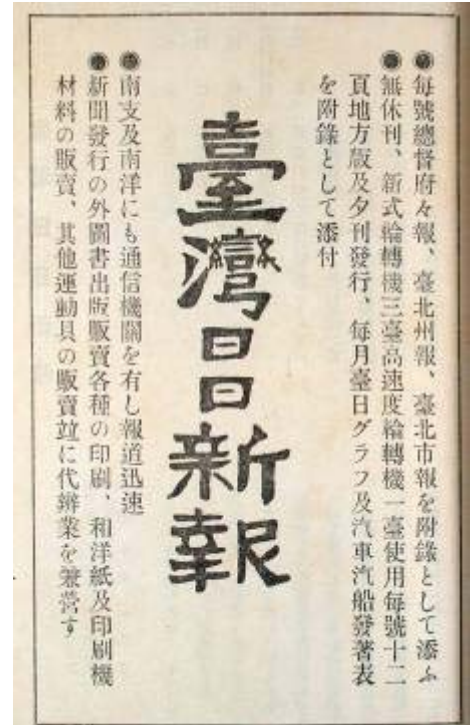 ◉每號總督府々報、臺北州報、臺北市報を附錄として添ふ
◉無休刊、新式輪轉機三臺高速度輪轉機一臺使用每號十二
頁地方版及夕刊發行、每月臺日グラフ及汽車汽船發著表
を附錄として添付
臺灣日日新報
◉南支及南洋にも通信機關を有し報道迅速
◉新聞發行の外圖書出版販賣各種の印刷、和洋紙及印刷機
材料の販賣、其他運動具の販賣竝に代辨業を兼營す